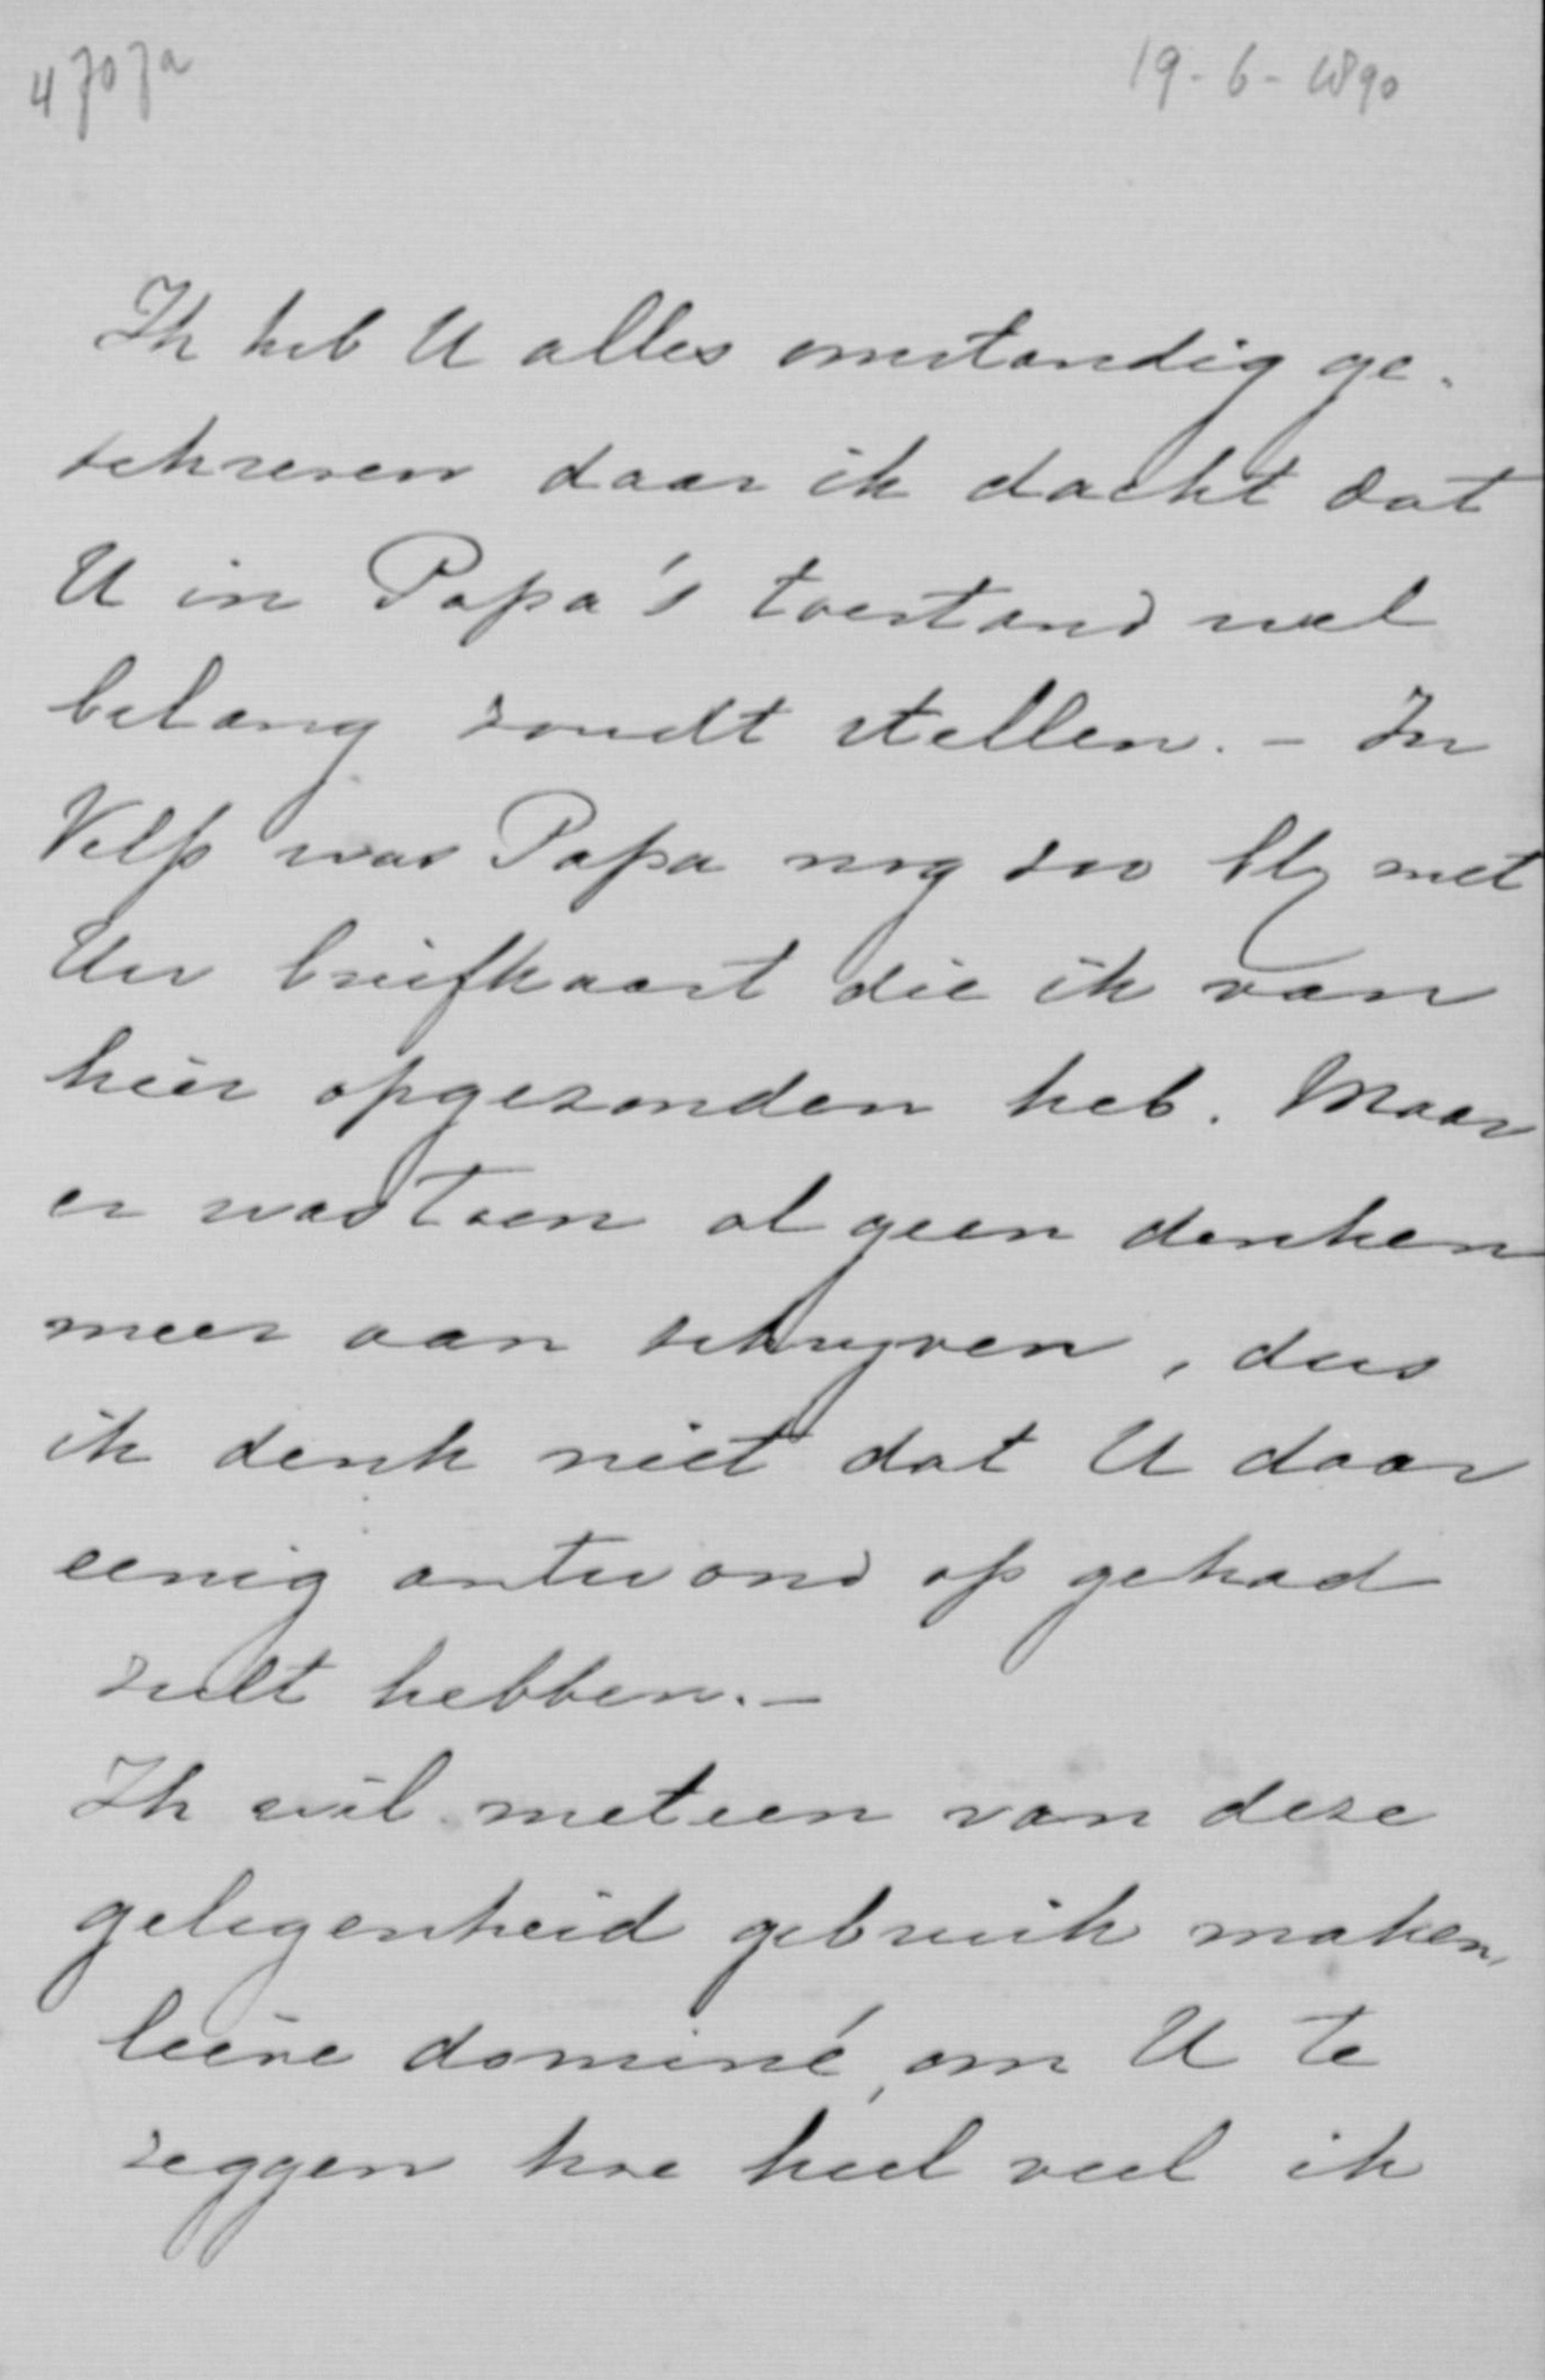 4707a
19-6-1890
Ik heb U alles omstandig ge-
schreven daar ik dacht dat
U in Papa's toestand wel
belang zoudt stellen. - In
Velp was Papa nog zoo bly met
Uw briefkaart die ik van
hier opgezonden heb. Maar
er was toen al geen denken
meer aan schryven, dus
ik denk niet dat U daar
eenig antwoord op gehad
zult hebben. -
Ik wil meteen van deze
gelegenheid gebruik maken,
lieve dominé, om U te
zeggen hoe heel veel ik